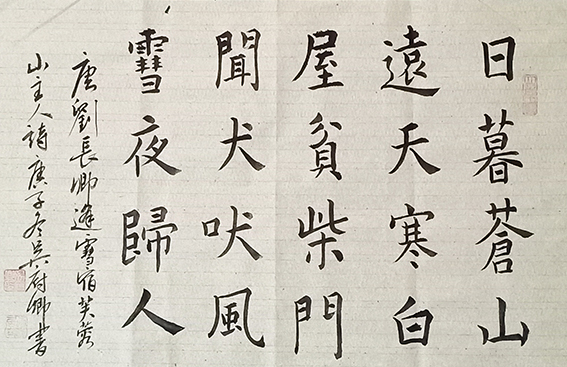 日暮蒼山
遠天寒白
屋貧柴門
聞犬吠風
䨮夜歸人
唐劉長卿逢雪宿芙蓉
山主人詩庚子冬吳府卿書